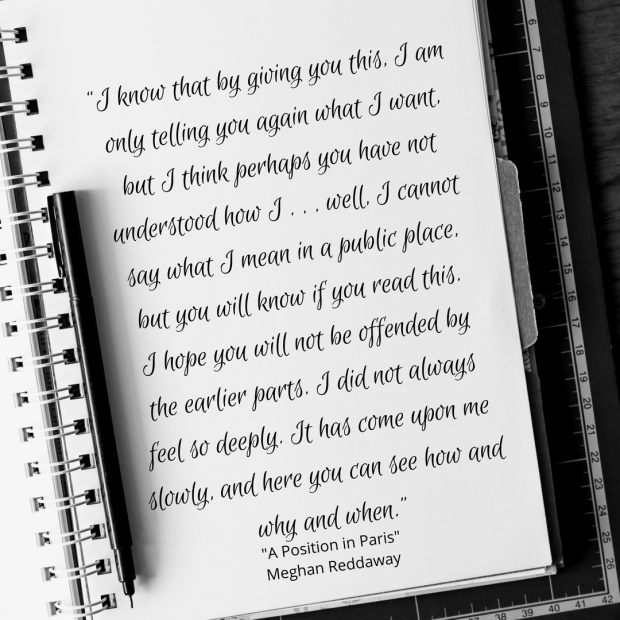 “I know that by giving you this, I am
only telling you again what I want,
but I think perhaps you have not
understood how I . . . well, I cannot
say what I mean in a public place,
but you will know if you read this.
I hope you will not be offended by
the earlier parts. I did not always
feel so deeply. It has come upon me
slowly, and here you can see how and
why and when.”
"A Position in Paris"
Meghan Reddaway
6
7
8
9
10
11
12
13
14
15
16
17
18
19
20
21
22
23
24
25
26
38
39
40
41
42